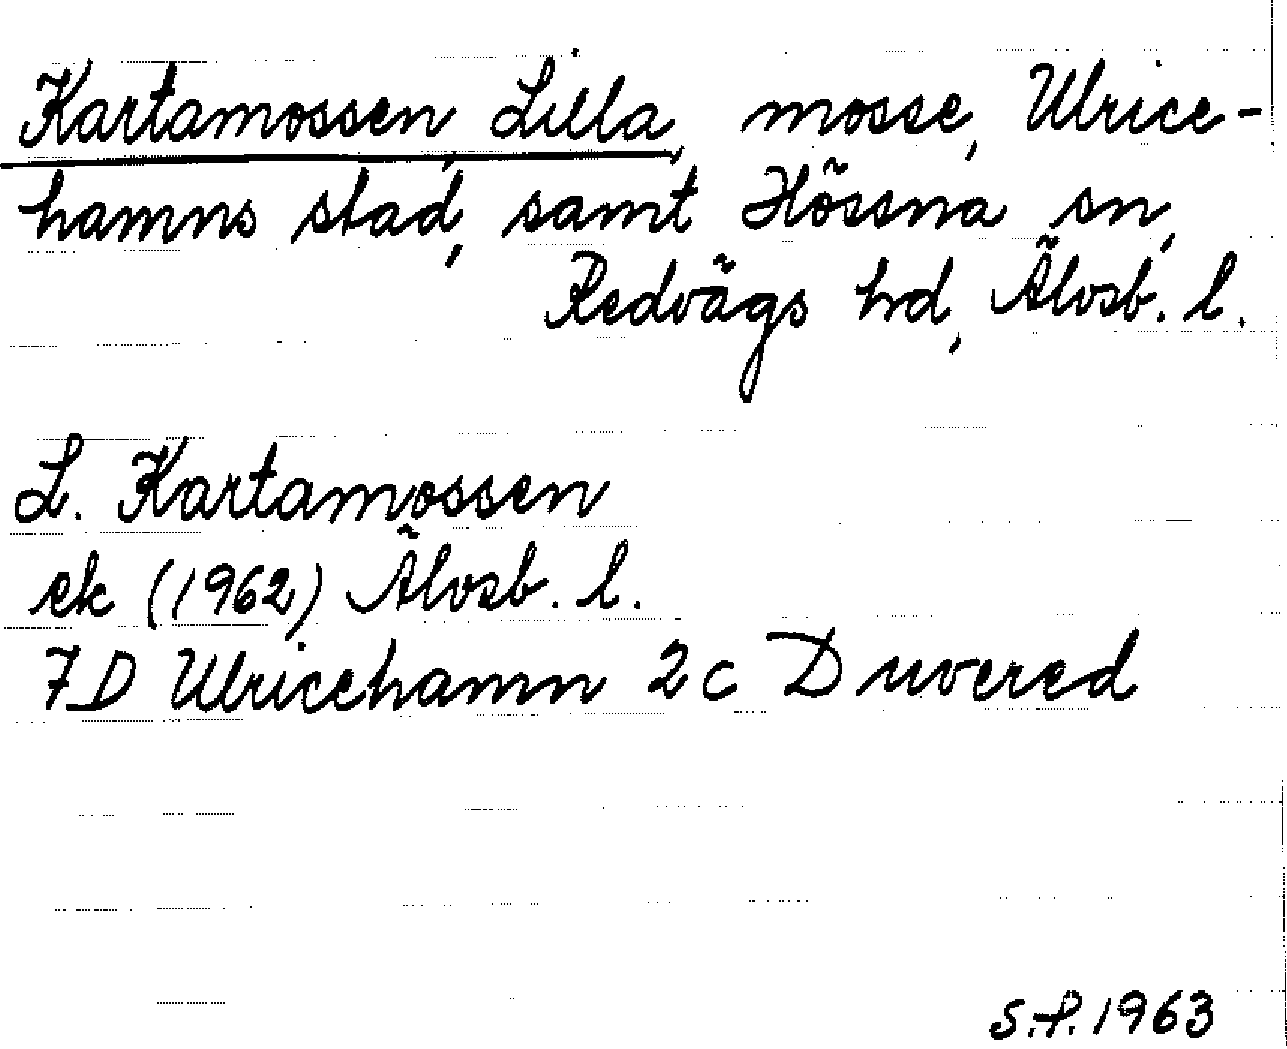 Kartamossen, Lilla, mosse, Ulrice-
hamns stad, samt Hössna sn,
Redvägs hd, Älvsb. l.
L. Kartamossen
ek (1962) Älvsb. l.
7D Ulricehamn 2c Duvered
S.P. 1963